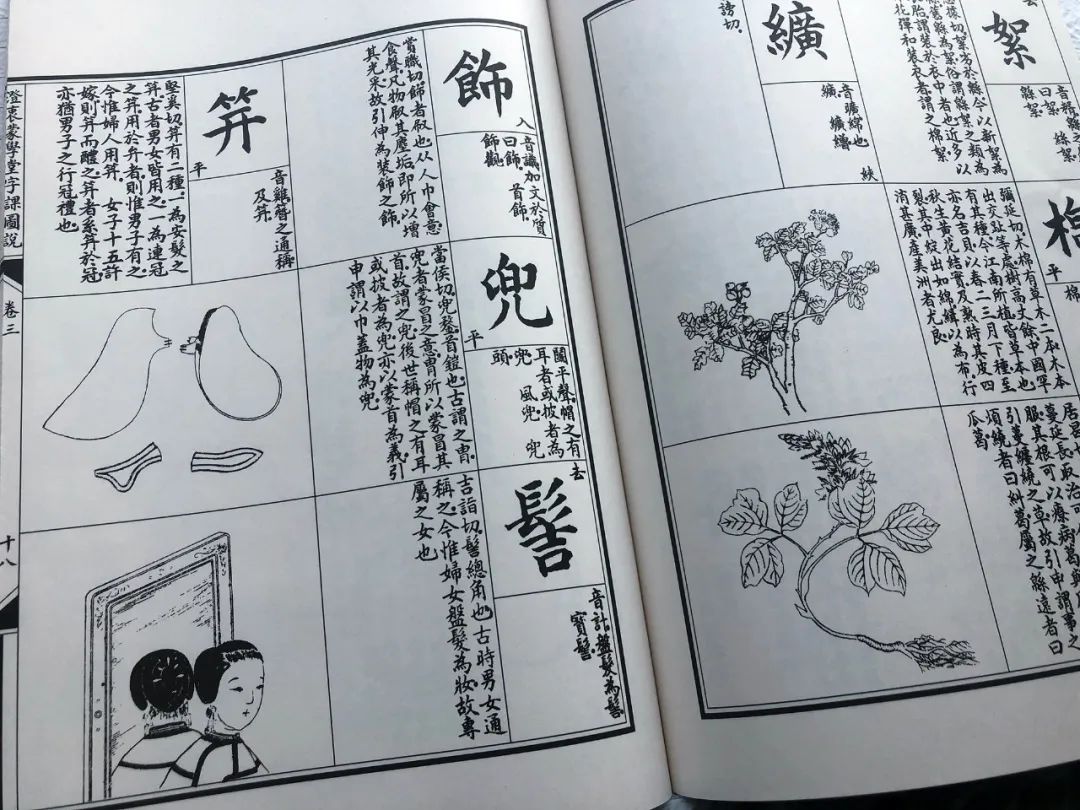 去
絮
曰絮
緜絮
緜舊緜為絮俗謂緜絮之類為
胎謂裝於衣中者也近多以
纊
音曠綿也
謗切
棉
平
棉
彌延切木棉有草木二本木本
出交趾等處樹高丈餘中國罕
有其種今江南所植皆草本也
亦名吉貝以春二三月下種至
秋生黃花結實及熟時其皮四
裂其中綻出如綿纊以為布行
消甚廣產美洲者尤良
蔓延長取治可
服其根可以療病葛
引蔓纏繞之草故引申謂事之
煩繞者曰糾葛屬之緜遠者曰
瓜葛
飾
入
音識加文於質
曰飾 首飾
飾觀
賞職切飾者㕞也从人巾會意
食聲凡物㕞其塵垢即所以增
其光采故引伸為裝飾之飾
笄
平
音雞簪之通稱
及笄
堅奚切笄有二種一為安髮之
笄古者男女皆用之一為連冠
之笄用於弁者則惟男子有之
今惟婦人用笄 女子十五許
嫁則笄而醴之笄者系笄於冠
亦猶男子之行冠禮也
兜
平
鬬平聲帽之有
耳者或披者為
兜 風兜 兜
頭
當侯切兜鍪首鎧也古謂之冑
兜者蒙冒之意冑所以蒙冒其
首故謂之兜後世稱帽之有耳
或披者為兜亦以蒙首為義引
申謂以巾蓋物為兜
髻
去
音計盤髮為髻
寶髻
吉詣切髻總角也古時男女通
稱之今惟婦女盤髮為妝故專
屬之女也
澄衷蒙學堂字課圖說
卷三
十八